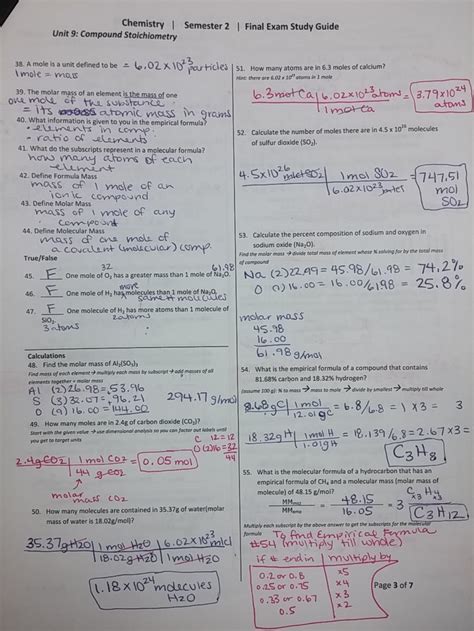 Chemistry | Semester 2 | Final Exam Study Guide
Unit 9: Compound Stoichiometry
38. A mole is a unit defined to be = 6.02×10²³ particles
1 mole = mass
39. The molar mass of an element is the mass of one
one mole of the substance
= its atomic mass in grams
40. What information is given to you in the empirical formula?
• elements in comp.
• ratio of elements
41. What do the subscripts represent in a molecular formula?
how many atoms of each
element
42. Define Formula Mass
mass of 1 mole of an
ionic compound
43. Define Molar Mass
mass of 1 mole of any
compound
44. Define Molecular Mass
mass of one mole of
a covalent (molecular) comp.
True/False
32 61.98
45. F One mole of O₂ has a greater mass than 1 mole of Na₂O.
more
46. F One mole of H₂ has molecules than 1 mole of Na₂O.
same # molecules
47. F One molecule of H₂ has more atoms than 1 molecule of
SiO₂. 2 atoms
3 atoms
Calculations
48. Find the molar mass of Al₂(SO₃)₃
Find mass of each element → multiply each mass by subscript → add masses of all
elements together = molar mass
Al (2) 26.98 = 53.96
S (3) 32.07 = 96.21 294.17 g/mol
O (9) 16.00 = 144.00
49. How many moles are in 2.4g of carbon dioxide (CO₂)?
Start with the given value → use dimensional analysis so you can factor out labels until
you get to target units
C 12 = 12
O (2) 16 = 32
44
2.4g CO2 | 1 mol CO2 = 0.05 mol
44 g CO2
molar
mass CO2
50. How many molecules are contained in 35.37g of water(molar
mass of water is 18.02g/mol)?
35.37g H2O | 1 mol H2O | 6.02×10²³ mlcl
18.02g H2O | 1 mol
1.18×10²⁴ molecules
H2O
51. How many atoms are in 6.3 moles of calcium?
Hint: there are 6.02 x 10²³ atoms in 1 mole
6.3 mol Ca | 6.02×10²³ atoms = 3.79×10²⁴
1 mol Ca atoms
52. Calculate the number of moles there are in 4.5 x 10²⁶ molecules
of sulfur dioxide (SO₂).
4.5×10²⁶ mlcl SO2 | 1 mol SO2 = 747.51
6.02×10²³ mlcl mol
SO2
53. Calculate the percent composition of sodium and oxygen in
sodium oxide (Na₂O).
Find the molar mass → divide total mass of element whose % solving for by the total mass
of compound
Na (2) 22.99 = 45.98/61.98 = 74.2%
O (1) 16.00 = 16.00/61.98 = 25.8%
molar mass
45.98
16.00
61.98 g/mol
54. What is the empirical formula of a compound that contains
81.68% carbon and 18.32% hydrogen?
(assume 100 g): % to mass → mass to mole → divide by smallest → multiply till whole
81.68g C | 1 mol C = 6.8/6.8 = 1 ×3 = 3
12.01g C
18.32g H | 1 mol H = 18.139/6.8 = 2.67×3 =
1.01g H C3H8
55. What is the molecular formula of a hydrocarbon that has an
empirical formula of CH₄ and a molecular mass (molar mass of
molecule) of 48.15 g/mol?
MM = 48.15 = 3 C3H4
MM 16.05 ×3
C3H12
Multiply each subscript by the above answer to get the subscripts for the molecular
formula
To find Empirical Formula
#54 (multiply till whole)
if # end in | multiply by
0.2 or 0.8 ×5
0.25 or 0.75 ×4
0.33 or 0.67 ×3
0.5 ×2
Page 3 of 7